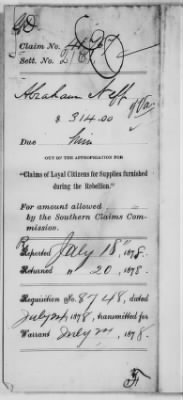 Claim No.
Sett. No.
Abraham Neff
of Va.
$ 314.00
Due him
OUT OF THE APPROPRIATION FOR
"Claims of Loyal Citizens for Supplies furnished
during the Rebellion."
For amount allowed
by the Southern Claims Com-
mission.
Reported July 18", 1878.
Returned " 20, 1878
Requisition No. 8748, dated
July 24, 1878, transmitted for
Warrant July, 1878.